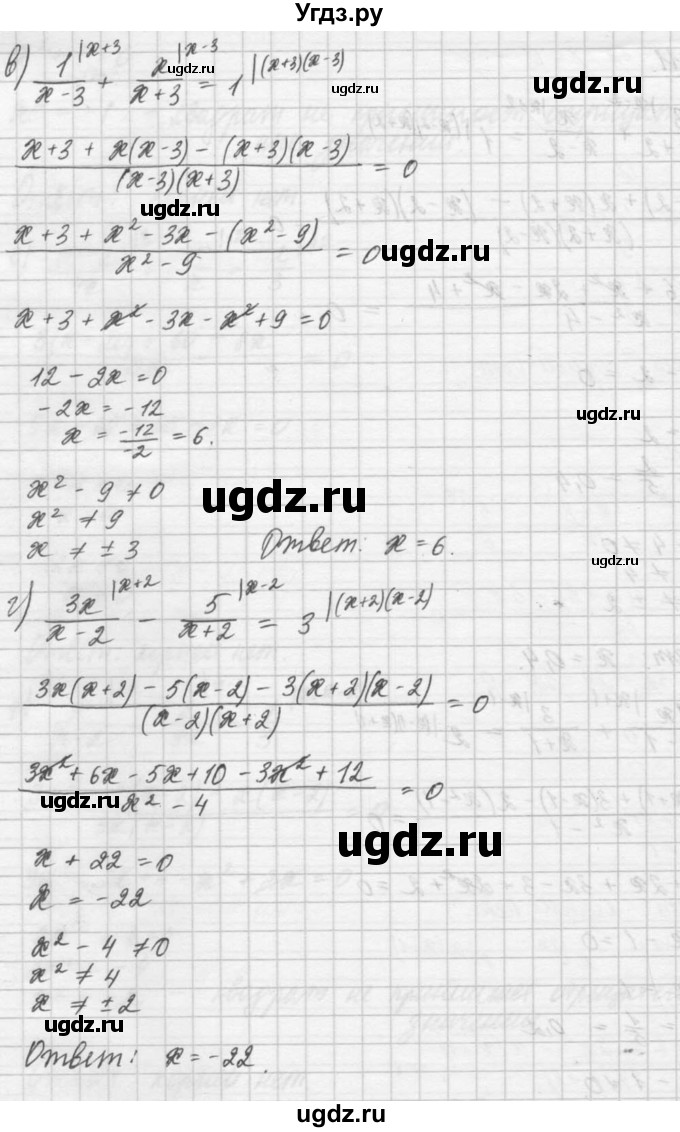 Угдз.ру
в) 1/(x-3) |x+3 + x/(x+3) |x-3 = 1 |(x+3)(x-3)
ugdz.ru
ugdz.ru
(x+3 + x(x-3) - (x+3)(x-3))/((x-3)(x+3)) = 0
ugdz.ru
(x+3 + x² - 3x - (x² - 9))/(x² - 9) = 0
ugdz.ru
x + 3 + x² - 3x - x² + 9 = 0
12 - 2x = 0
-2x = -12
ugdz.ru
x = -12/-2 = 6.
x² - 9 ≠ 0
ugdz.ru
x² ≠ 9
x ≠ ± 3 Ответ: x = 6.
ugdz.ru
г) 3x/(x-2) |x+2 - 5/(x+2) |x-2 = 3 |(x+2)(x-2)
(3x(x+2) - 5(x-2) - 3(x+2)(x-2))/((x-2)(x+2)) = 0
(3x² + 6x - 5x + 10 - 3x² + 12)/(x² - 4) = 0
ugdz.ru
ugdz.ru
x + 22 = 0
x = -22
x² - 4 ≠ 0
x² ≠ 4
x ≠ ± 2
ugdz.ru
Ответ: x = -22.
ugdz.ru